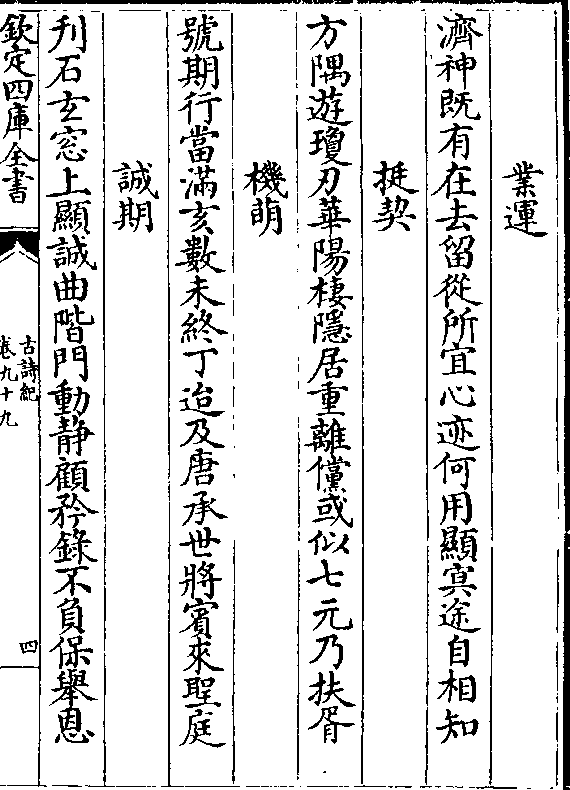 業運
濟神既有在去留從所宜心迹何用顯冥途自相知
挺契
方隅遊瓊刃華陽棲隱居重離儻或似七元乃扶胥
機萌
號期行當滿亥數未終丁迨及唐承世將賓來聖庭
誠期
刋石玄窓上顯誠曲階門動静顧矜錄不負保舉恩
欽定四庫全書
古詩紀
卷九十九
四